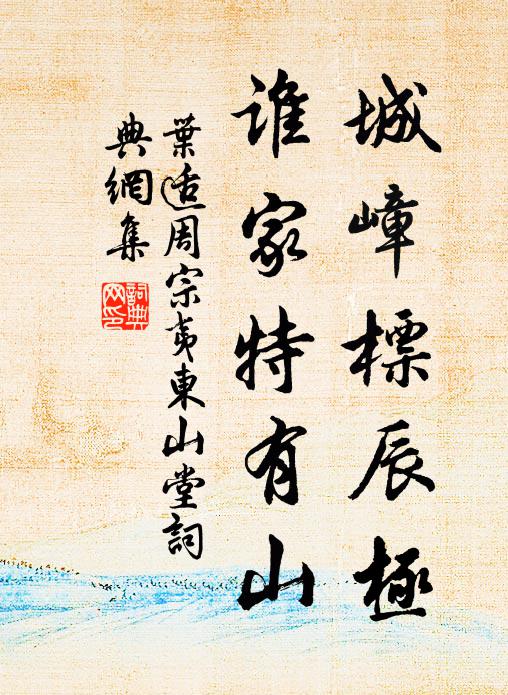 城嶂標辰極
誰家特有山
葉适周宗夷東山堂詞
典網集
詞典網印